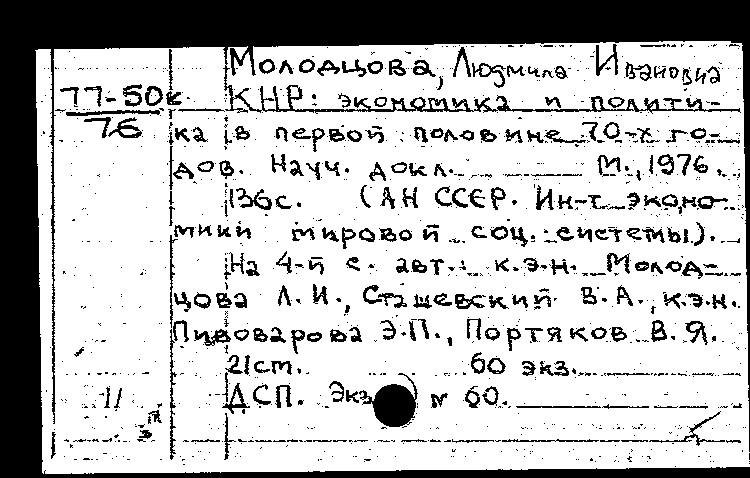 Молодцова, Людмила Ивановна
77-50к
76
КНР: экономика и полити-
ка в первой половине 70-х го-
дов. Науч. докл. М., 1976.
136с. (АН СССР. Ин-т эконо-
мики мировой соц. системы).
На 4-й с. авт.: к.э.н. Молод-
цова Л.И., Сташевский В.А., к.э.н.
Пивоварова Э.П., Портяков В.Я.
21ст. 60 экз.
11 ДСП. Экз № 60.